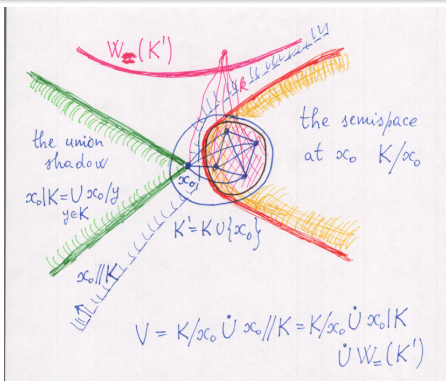 W=(K')
k
the union
shadow
x₀|K=∪ x₀/y
y∈K
the semispace
at x₀ K/x₀
x₀
K'=K∪{x₀}
x₀//K
V = K/x₀ ∪̇ x₀//K = K/x₀ ∪̇ x₀|K
∪̇ W=(K')